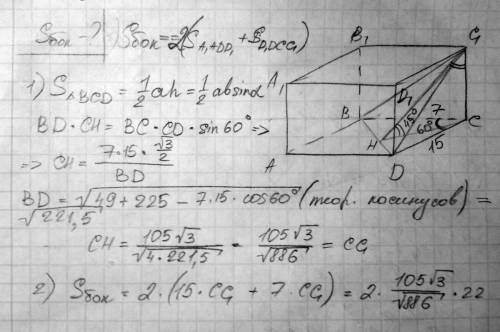 Sбок - ? Sбок = 2(S A₁ADD₁ + S D₁DCC₁)
1) S ABCD = 1/2 ah = 1/2 absinα
BD · CH = BC · CD · sin 60° =>
=> CH = (7·15·√3/2)/BD
BD = √49 + 225 - 7·15·cos60° (теор. косинусов) =
√221,5
CH = 105√3/√4·221,5 = 105√3/√886 = CC₁
2) Sбок = 2·(15·CC₁ + 7·CC₁) = 2·105√3/√886·22
B₁
C₁
A₁
D₁
B
7
C
45°
60°
H
15
A
D